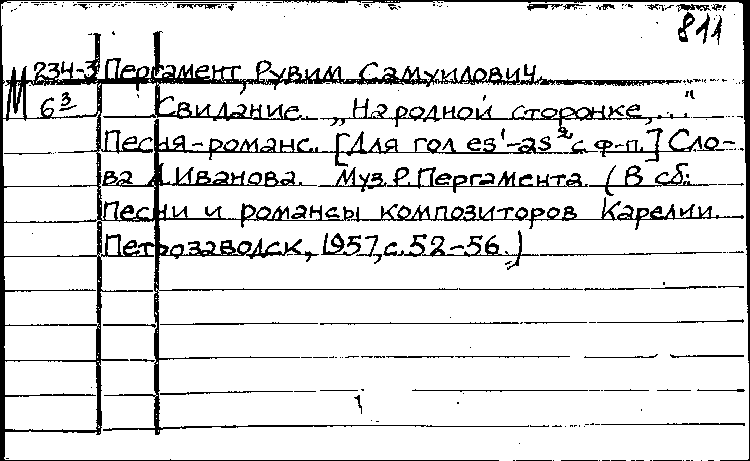 811
М 234-3 Пергамент, Рувим Самуилович.
6³ Свидание. „Народной сторонке,..."
Песня-романс. [Для гол es¹-as² с ф-п.] Сло-
ва А.Иванова. Муз.Р.Пергамента. (В сб.:
Песни и романсы композиторов Карелии.
Петрозаводск, 1957, с.52-56.)